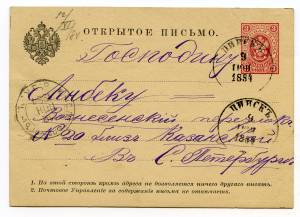 ОТКРЫТОЕ ПИСЬМО.
Господину
ПИНСКЪ
9
1884
Линдеку
Вознесенскій переулокъ
ПИНСКЪ
9
1884
№ близъ Казанской
Въ С. Петербургѣ
1. На этой сторонѣ кромѣ адреса не дозволяется ничего другаго писать.
2. Почтовое Управленіе за содержаніе письма не отвѣчаетъ.